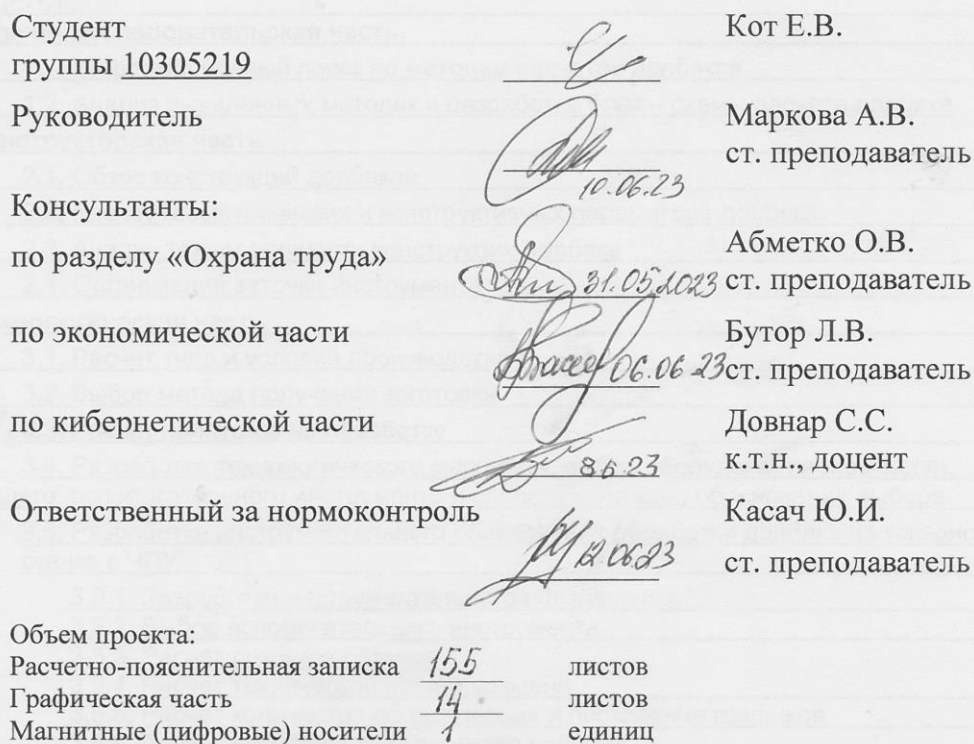 Студент Кот Е.В.
группы 10305219
Руководитель Маркова А.В.
ст. преподаватель
10.06.23
Консультанты:
Абметко О.В.
по разделу «Охрана труда» 31.05.2023 ст. преподаватель
по экономической части Бутор Л.В.
06.06.23 ст. преподаватель
по кибернетической части Довнар С.С.
8.6.23 к.т.н., доцент
Ответственный за нормоконтроль Касач Ю.И.
12.06.23 ст. преподаватель
Объем проекта:
Расчетно-пояснительная записка 155 листов
Графическая часть 14 листов
Магнитные (цифровые) носители 1 единиц